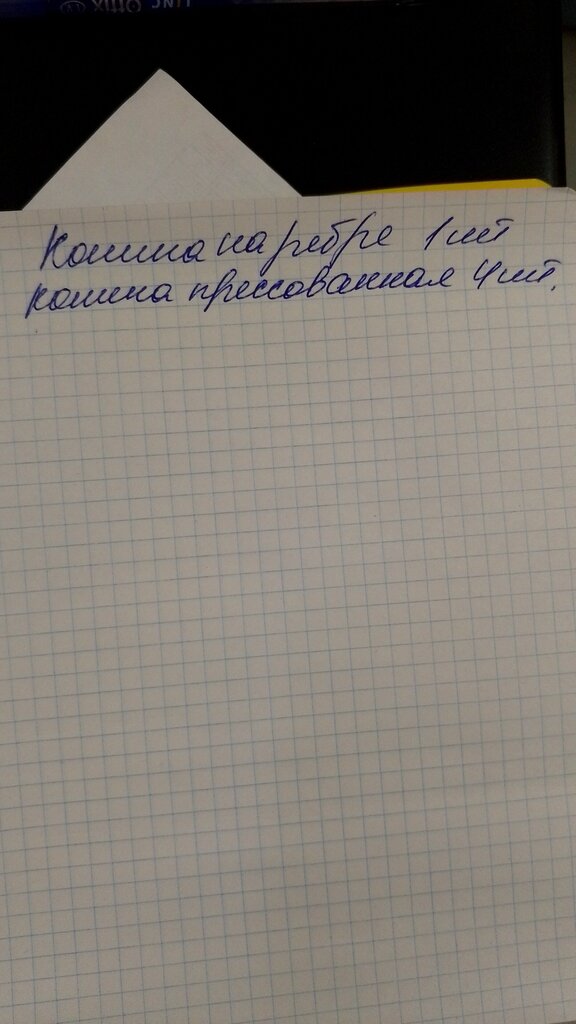 Конина на ребре 1 шт
конина прессованная 4 шт.